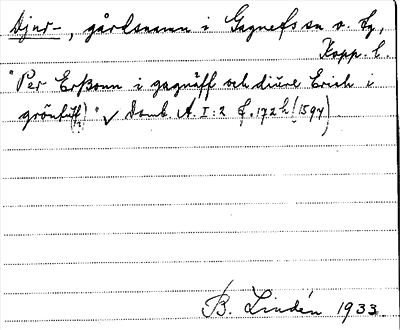 Djur-, gårdsnamn i Gagnefs sn o. tg,
Kopp. l.
"Per Erßonn i gagnäff och diure Erich i
grönfu(ff)" ✓ Domb. A. I:2 f. 172 h! 1594)
B. Lindén 1933.